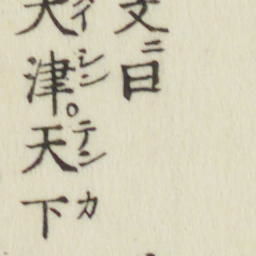 文ニ曰
大津。天下
イシン テンカ